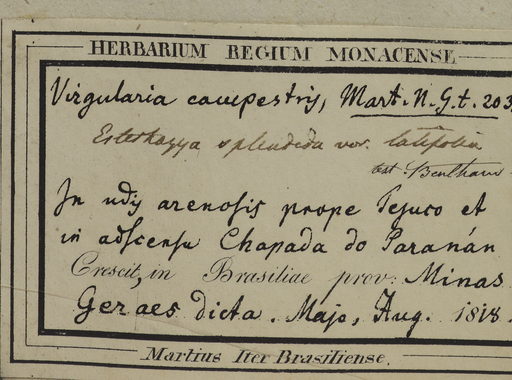 HERBARIUM REGIUM MONACENSE
Virgularia campestris, Mart. N. G. t. 203
Esterhazya splendida var. latifolia
test. Bentham
In udis arenosis prope Tejuco et
in adscensu Chapada do Paranán
Crescit, in Brasiliae prov. Minas
Geraes dicta. Majo, Aug. 1818.
Martius Iter Brasiliense.